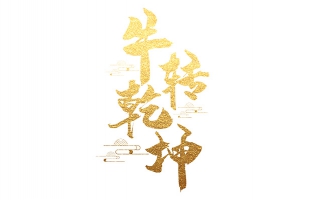 牛转乾坤